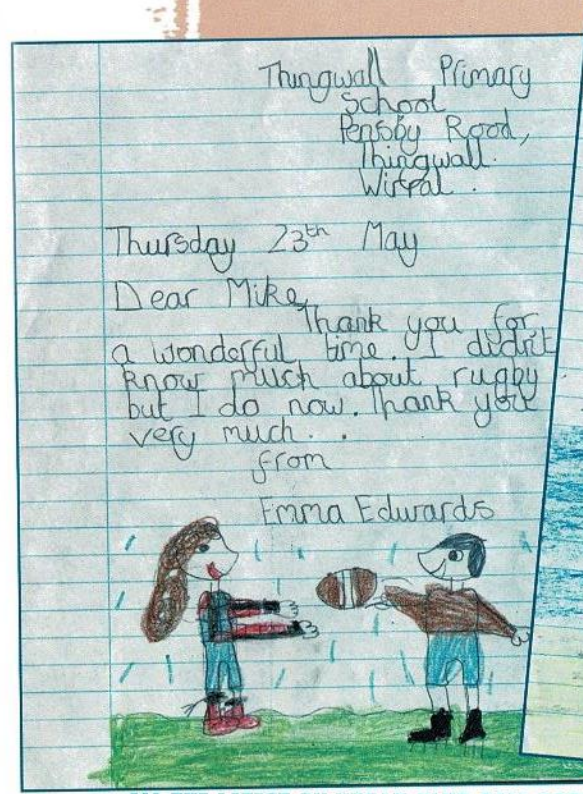 Thingwall Primary
School
Pensby Road,
Thingwall.
Wirral.
Thursday 23th May
Dear Mike,
Thank you for
a wonderful time. I didn't
know much about rugby
but I do now. Thank you
very much. .
from
Emma Edwards